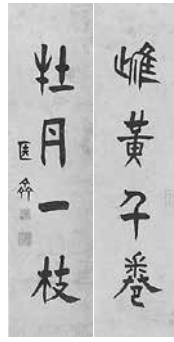 雌黃千卷
牡丹一枝